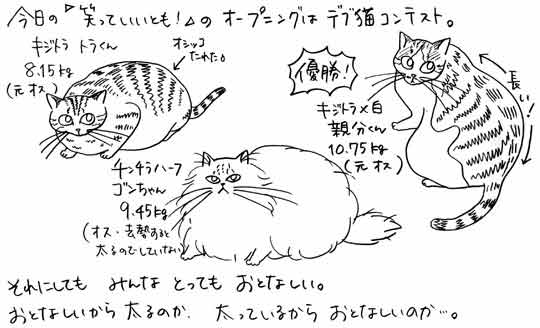 今日の『笑っていいとも!』の オープニングは デブ猫コンテスト。
キジトラ トラくん
8.15kg
(元オス)
オシッコ
たれた。
優勝!
キジトラ×白
親分くん
10.75kg
(元オス)
長い!
チンチラハーフ
ゴンちゃん
9.45kg
(オス・去勢すると
太るのでしていない)
それにしても みんな とっても おとなしい。
おとなしいから 太るのか、太っているから おとなしいのか…。